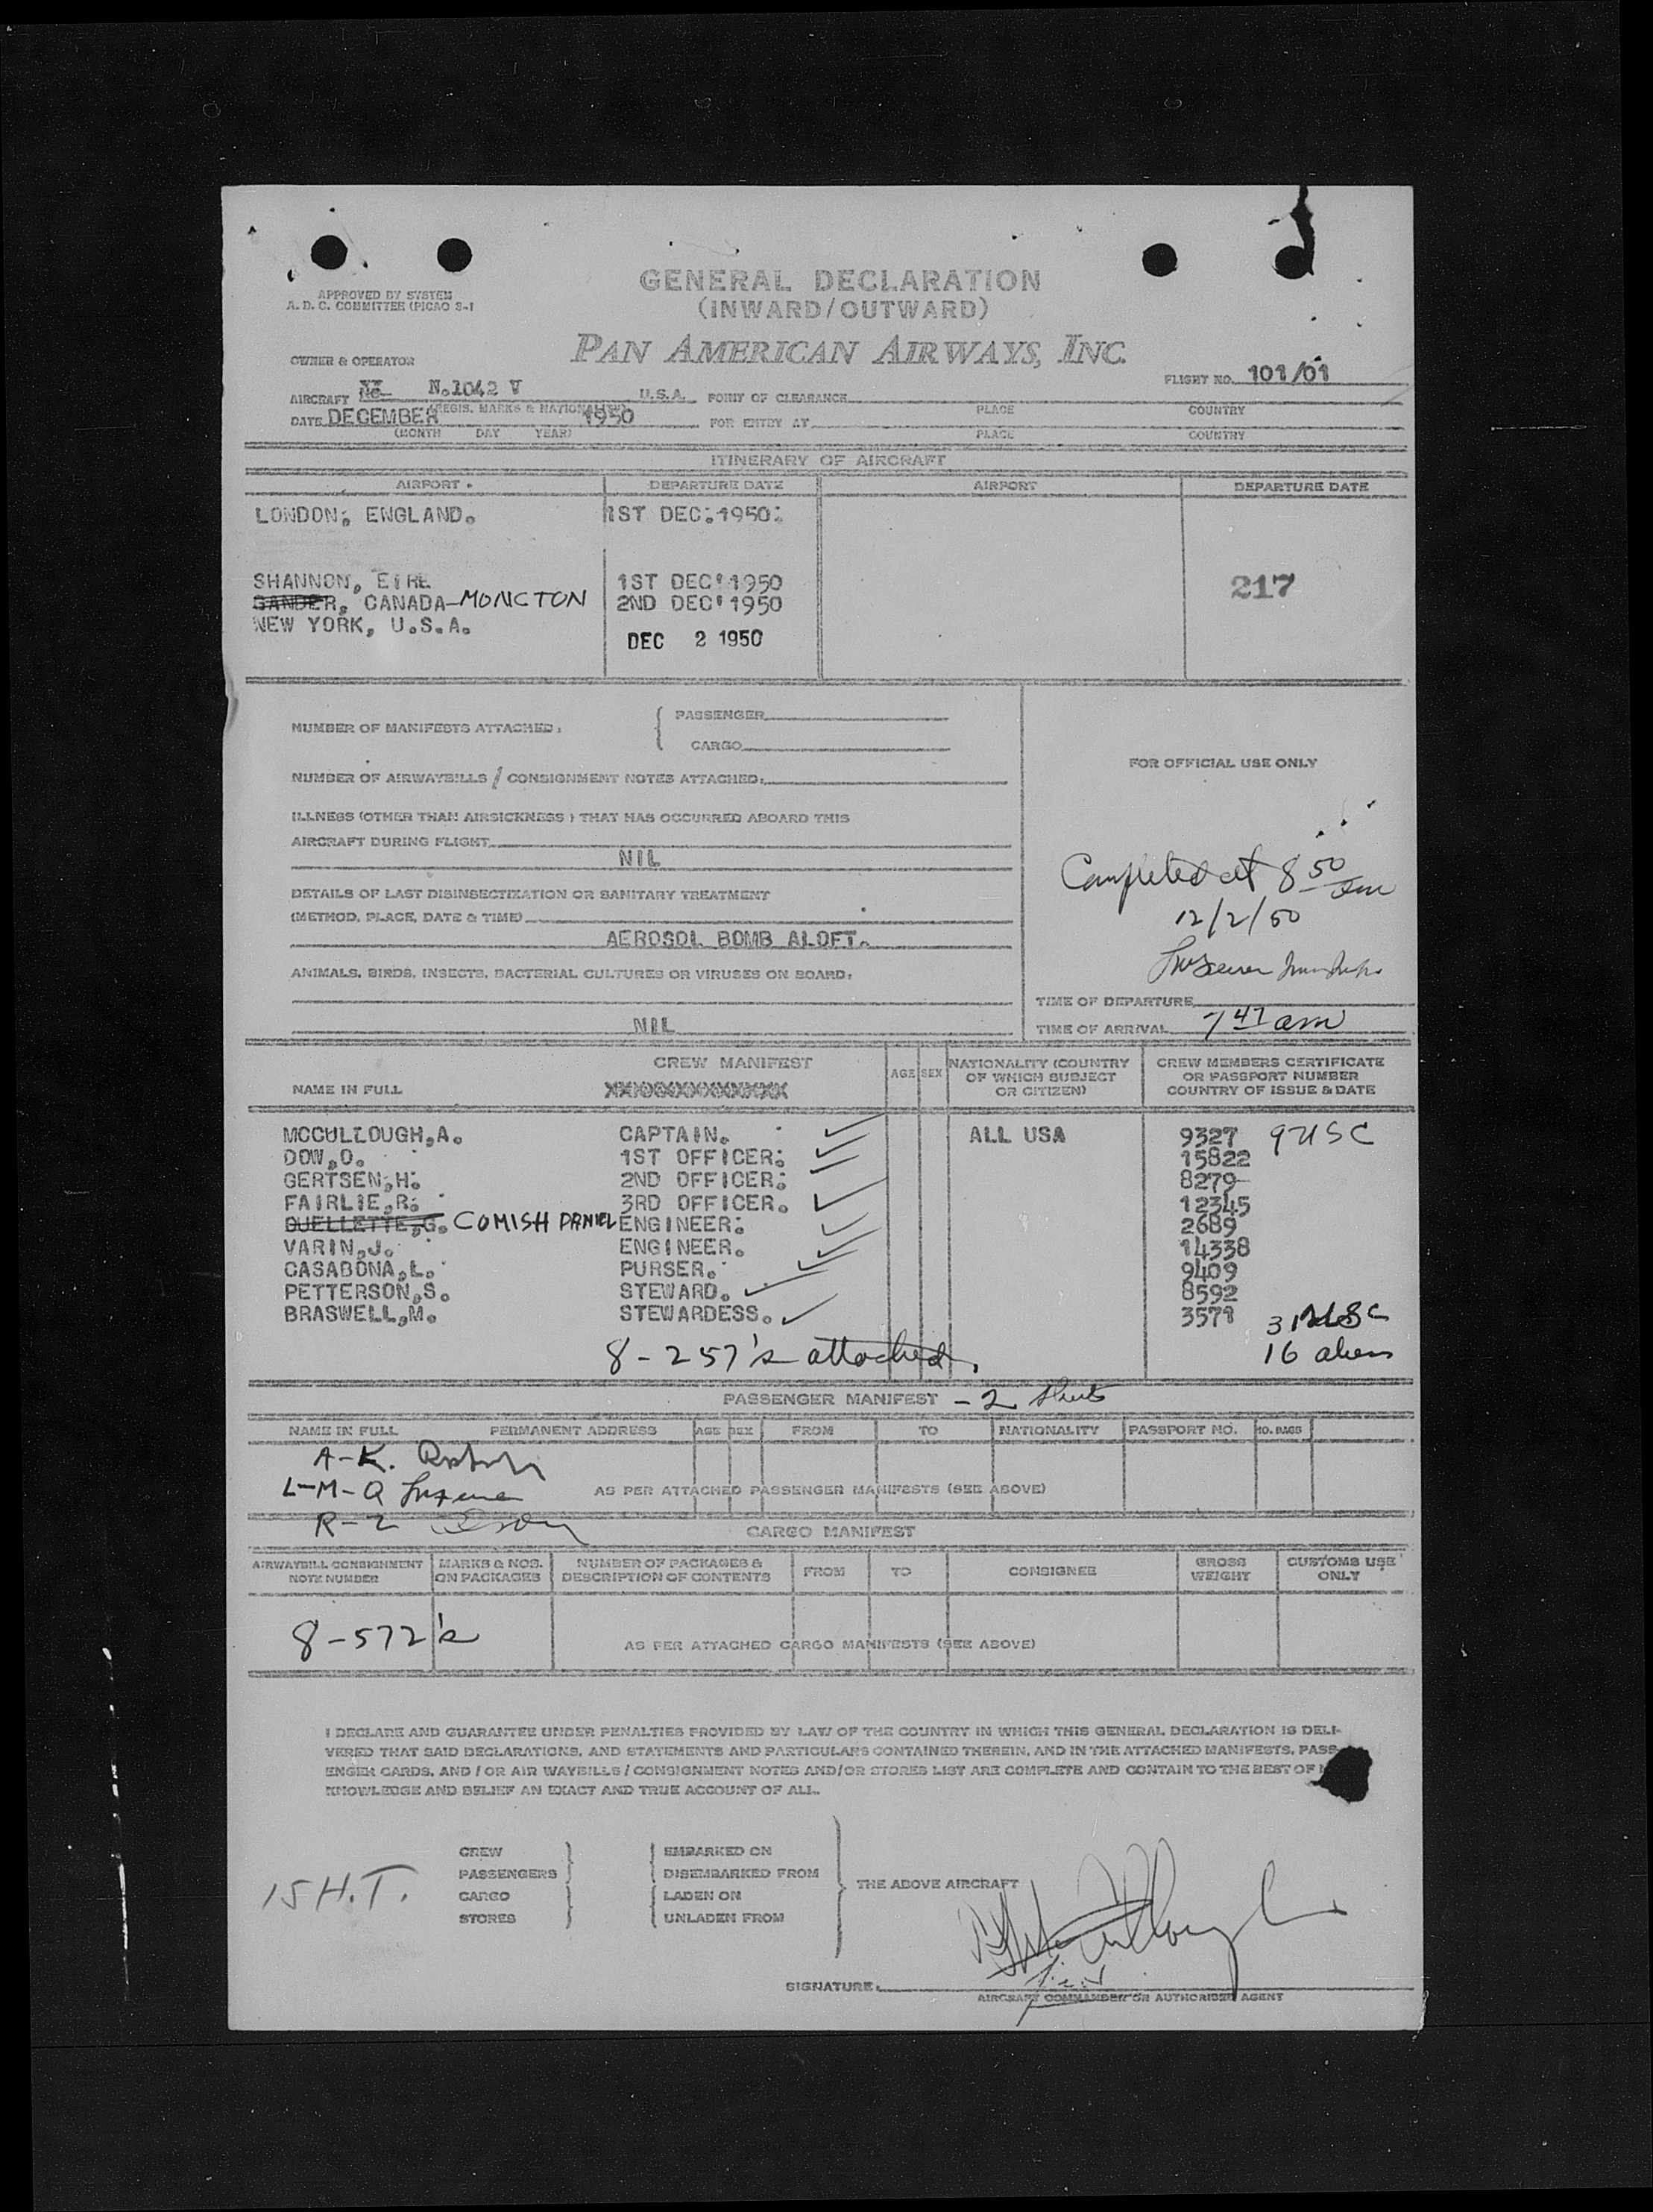 GENERAL DECLARATION
(INWARD/OUTWARD)
APPROVED BY SYSTEM
A. D. C. COMMITTEE (PICAO S-1
PAN AMERICAN AIRWAYS, INC.
OWNER & OPERATOR
FLIGHT NO. 101/01
AIRCRAFT NO. N.1042 V U.S.A. POINT OF CLEARANCE
(REGIS. MARKS & NATIONALITY) PLACE COUNTRY
DATE DECEMBER 1950 FOR ENTRY AT
(MONTH DAY YEAR) PLACE COUNTRY
ITINERARY OF AIRCRAFT
AIRPORT DEPARTURE DATE AIRPORT DEPARTURE DATE
LONDON, ENGLAND. 1ST DEC.1950.
SHANNON, EIRE 1ST DEC'1950 217
GANDER, CANADA-MONCTON 2ND DEC'1950
NEW YORK, U.S.A. DEC 2 1950
NUMBER OF MANIFESTS ATTACHED: PASSENGER
CARGO
NUMBER OF AIRWAYBILLS / CONSIGNMENT NOTES ATTACHED:
FOR OFFICIAL USE ONLY
ILLNESS (OTHER THAN AIRSICKNESS) THAT HAS OCCURRED ABOARD THIS
AIRCRAFT DURING FLIGHT
NIL
Completed at 8 50 am
12/2/50
DETAILS OF LAST DISINSECTIZATION OR SANITARY TREATMENT
(METHOD, PLACE, DATE & TIME)
AEROSOL BOMB ALOFT.
ANIMALS, BIRDS, INSECTS, BACTERIAL CULTURES OR VIRUSES ON BOARD:
NIL
TIME OF DEPARTURE
TIME OF ARRIVAL 7 47 am
CREW MANIFEST
NAME IN FULL AGE SEX NATIONALITY (COUNTRY OF WHICH SUBJECT OR CITIZEN) CREW MEMBERS CERTIFICATE OR PASSPORT NUMBER COUNTRY OF ISSUE & DATE
MCCULLOUGH,A. CAPTAIN. ALL USA 9327 9 USC
DOW,O. 1ST OFFICER. 15822
GERTSEN,H. 2ND OFFICER. 8279
FAIRLIE,R. 3RD OFFICER. 12345
OUELLETTE,G. COMISH DANIEL ENGINEER. 2689
VARIN,J. ENGINEER. 14338
CASABONA,L. PURSER. 9409
PETTERSON,S. STEWARD. 8592
BRASWELL,M. STEWARDESS. 3579
8-257's attached.
16 aliens
PASSENGER MANIFEST - 2 sheets
NAME IN FULL PERMANENT ADDRESS AGE SEX FROM TO NATIONALITY PASSPORT NO. NO. BAGS
A-K.
L-M-Q
AS PER ATTACHED PASSENGER MANIFESTS (SEE ABOVE)
R-Z
CARGO MANIFEST
AIRWAYBILL CONSIGNMENT NOTE NUMBER MARKS & NOS. ON PACKAGES NUMBER OF PACKAGES & DESCRIPTION OF CONTENTS FROM TO CONSIGNEE GROSS WEIGHT CUSTOMS USE ONLY
8-572's
AS PER ATTACHED CARGO MANIFESTS (SEE ABOVE)
I DECLARE AND GUARANTEE UNDER PENALTIES PROVIDED BY LAW OF THE COUNTRY IN WHICH THIS GENERAL DECLARATION IS DELI-
VERED THAT SAID DECLARATIONS, AND STATEMENTS AND PARTICULARS CONTAINED THEREIN, AND IN THE ATTACHED MANIFESTS, PASS-
ENGER CARDS, AND / OR AIR WAYBILLS / CONSIGNMENT NOTES AND/OR STORES LIST ARE COMPLETE AND CONTAIN TO THE BEST OF
KNOWLEDGE AND BELIEF AN EXACT AND TRUE ACCOUNT OF ALL.
15 H.T.
CREW EMBARKED ON
PASSENGERS DISEMBARKED FROM
THE ABOVE AIRCRAFT
CARGO LADEN ON
STORES UNLADEN FROM
SIGNATURE:
AIRCRAFT COMMANDER OR AUTHORISED AGENT